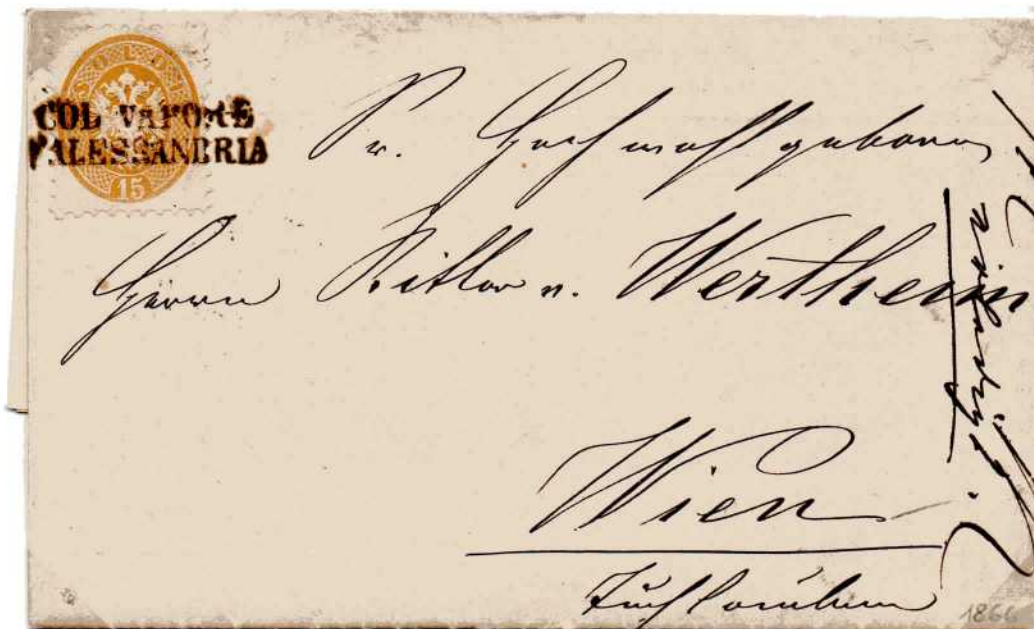 SOLDI
15
COL VAPORE
D'ALESSANDRIA
Sr. Hochwohlgeboren
Herrn Ritter v. Wertheim
Wien
Tuchlauben
1866